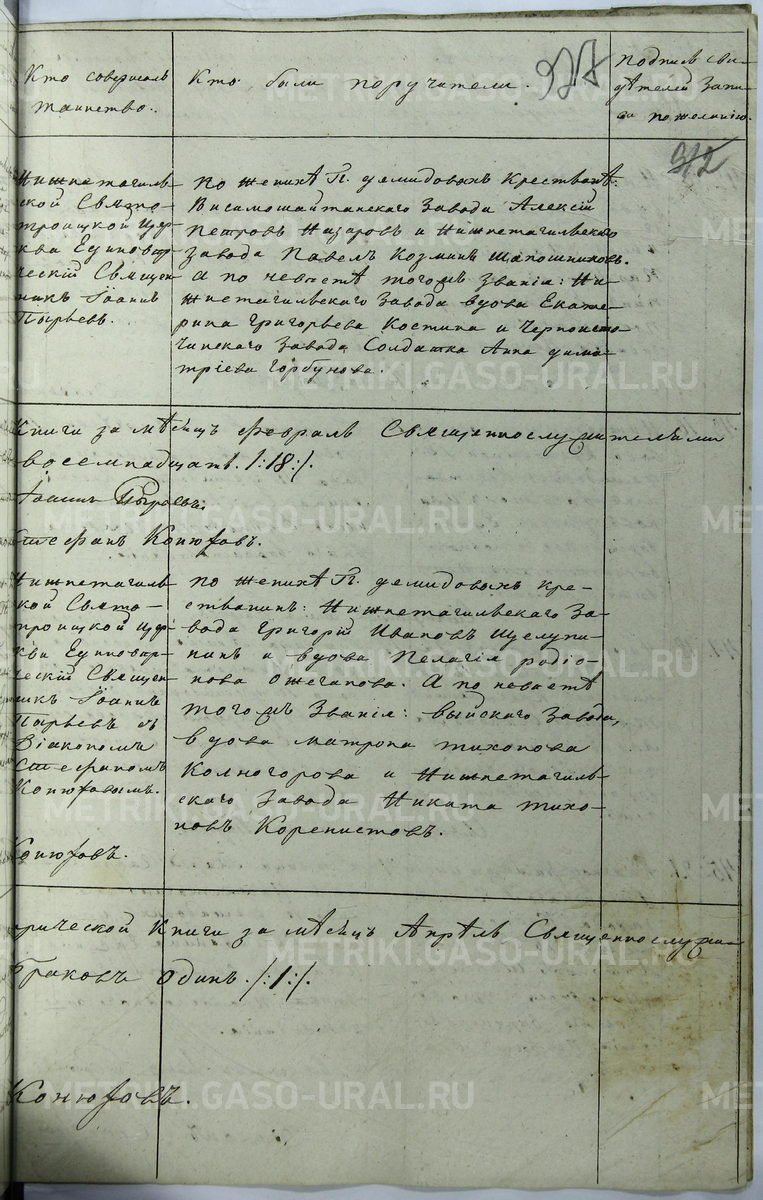 Кто совершалъ
таинство.
Кто были поручители.
Подпись сви-
дѣтелей запи-
си по желанію.
312
Нижнетагиль-
ской Свято-
троицкой цер-
кви Единовер-
ческій Священ-
никъ Іоаннъ
Пырьевъ.
По женихѣ Гг. Демидовыхъ Крестьянѣ:
Висимошайтанскаго Завода Алексій
Петровъ Назаровъ и Нижнетагильскаго
завода Павелъ Козминъ Шапошниковъ.
А по невѣстѣ тогожъ Званія: Ни-
жнетагильскаго Завода вдова Екате-
рина Григорьева Костина и Черноисто-
чинскаго Завода Солдатка Анна Дими-
тріева Горбунова.
Книги за мѣсяцъ Февраль Священнослужителями
восемнадцать. /:18:/.
Іоаннъ Пырьевъ.
Стефанъ Конюховъ.
Нижнетагиль-
кой Свято-
троицкой цер-
кви Единовер-
ческій Священ-
никъ Іоаннъ
Пырьевъ съ
Діакономъ
Стефаномъ
Конюховымъ.
По женихѣ Гг. Демидовыхъ кре-
стьянинъ: Нижнетагильскаго За-
вода Григорій Ивановъ Щелупи-
нинъ и вдова Пелагія Родіо-
нова Ожеганова. А по невѣстѣ
тогожъ Званія: Выйскаго Завода,
вдова Матрона Тихонова
Колногорова и Нижнетагиль-
скаго Завода Никита Тихо-
новъ Коренистовъ.
Конюховъ.
рической Книги за мѣсяцъ Апрѣль Священнослужи-
браковъ Одинъ. /:1:/.
Конюховъ.
METRIKI.GASO-URAL.RU